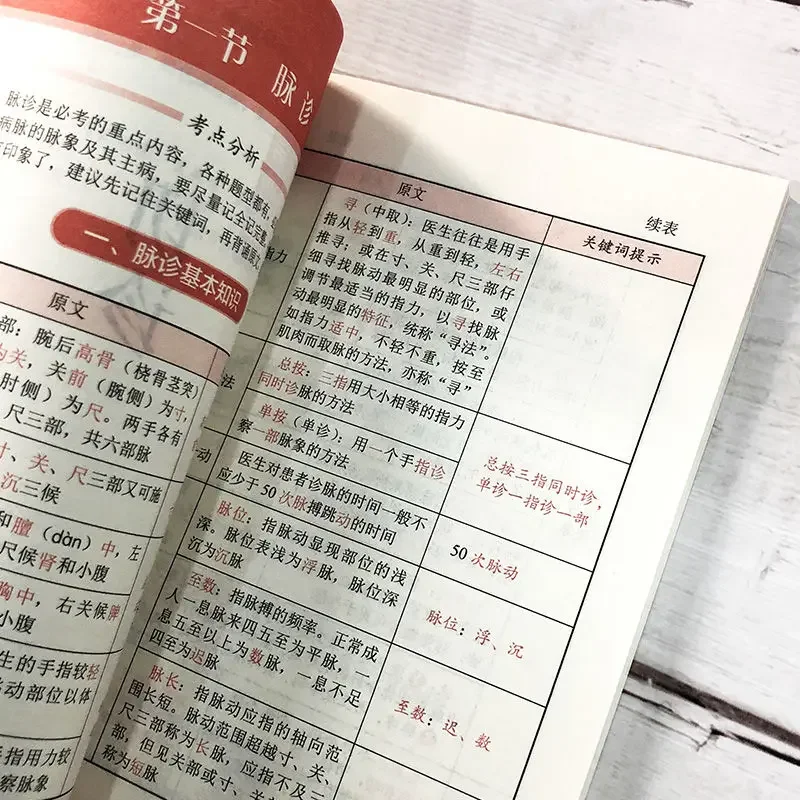 第一节 脉诊
考点分析
脉诊是必考的重点内容，各种题型都有，
病脉的脉象及其主病，要尽量记全记完整
印象了，建议先记住关键词，再背诵原文
一、脉诊基本知识
原文
部：腕后高骨（桡骨茎突）
为关，关前（腕侧）为寸，
肘侧）为尺。两手各有
尺三部，共六部脉
寸、关、尺三部又可施
沉三候
和膻（dàn）中，左
尺候肾和小腹
胸中，右关候脾
小腹
生的手指较轻
动部位以体
手指用力较
察脉象
续表
原文
关键词提示
指力
寻（中取）：医生往往是用手
指从轻到重，从重到轻，左右
推寻；或在寸、关、尺三部仔
细寻找脉动最明显的部位，或
调节最适当的指力，以寻找脉
动最明显的特征，统称“寻法”。
如指力适中，不轻不重，按至
肌肉而取脉的方法，亦称“寻”
法
总按：三指用大小相等的指力
同时诊脉的方法
单按（单诊）：用一个手指诊
察一部脉象的方法
总按三指同时诊，
单诊一指诊一部
动
医生对患者诊脉的时间一般不
应少于 50 次脉搏跳动的时间
50 次脉动
脉位：指脉动显现部位的浅
深。脉位表浅为浮脉，脉位深
沉为沉脉
脉位：浮、沉
至数：指脉搏的频率。正常成
人一息脉来四五至为平脉，一
息五至以上为数脉，一息不足
四至为迟脉
至数：迟、数
脉长：指脉动应指的轴向范
围长短。脉动范围超越寸、关、
尺三部称为长脉，应指不及三
部，但见关部或寸、关
称为短脉